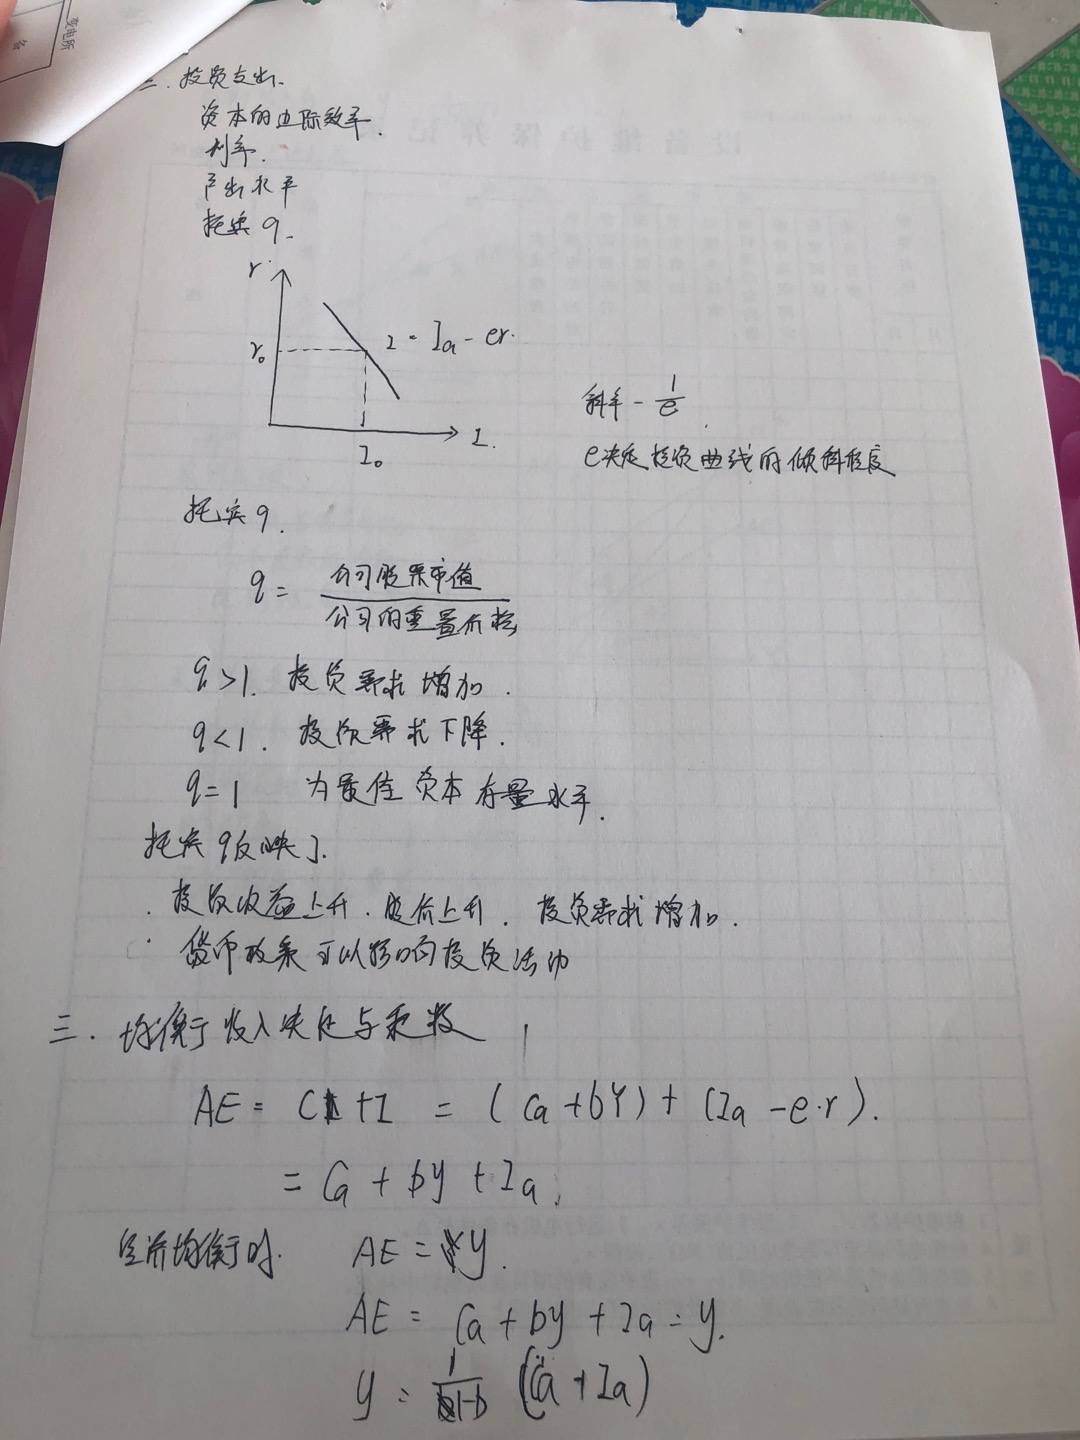 变电所
二. 投资支出.
资本的边际效率.
利率.
产出水平
托宾 q.
r
r₀
I = Ia - er.
I.
I₀
斜率 - 1/e.
e决定投资曲线的倾斜程度
托宾 q.
q = 公司股票市值 / 公司的重置价格
q > 1. 投资需求增加.
q < 1. 投资需求下降.
q = 1 为最佳资本存量水平.
托宾 q 反映了.
. 投资收益上升. 股价上升. 投资需求增加.
. 货币政策可以影响投资活动
三. 均衡收入决定与乘数
AE = C + I = (Ca + bY) + (Ia - e·r).
= Ca + by + Ia.
经济均衡时. AE = y.
AE = Ca + by + Ia = y.
y = 1/1-b (Ca + Ia)